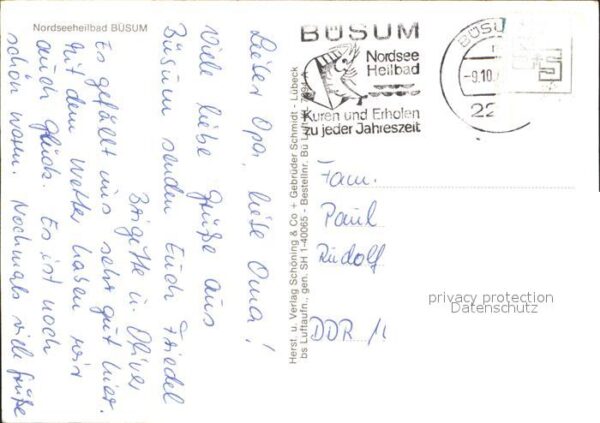 Nordseeheilbad BÜSUM
Lieber Opa, liebe Oma!
Viele liebe Grüße aus
Büsum senden Euch Friedel
Brigitte u. Oliver
Es gefällt uns sehr gut hier.
Mit dem Wetter haben wir
auch Glück. Es ist noch
schön warm. Nochmals viele Grüße
Herst. u. Verlag Schöning & Co + Gebrüder Schmidt - Lübeck
bs Luftaufn., gen. SH 1-40065 - Bestellnr. Bü
BÜSUM
Nordsee
Heilbad
Kuren und Erholen
zu jeder Jahreszeit
BÜSUM
-9.10.
22
Fam.
Paul
Rudolf
DDR
privacy protection
Datenschutz